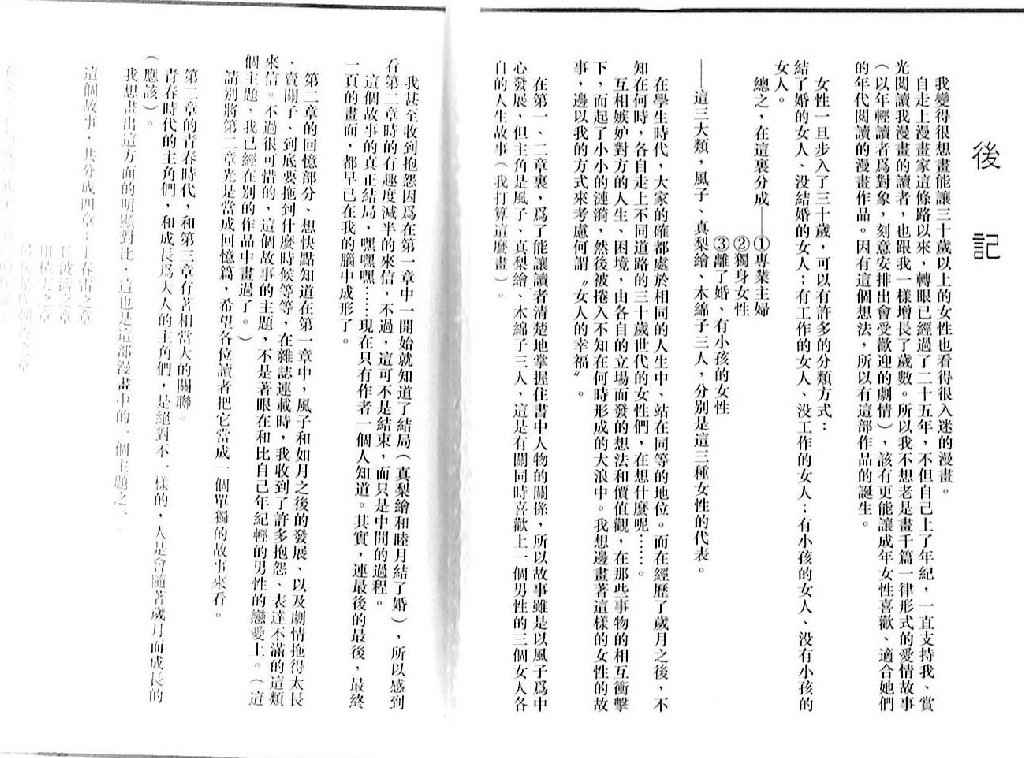 後記
我變得很想畫能讓三十歲以上的女性也看得很入迷的漫畫。
自走上漫畫家這條路以來，轉眼已經過了二十五年，不但自己上了年紀，一直支持我、賞
光閱讀我漫畫的讀者，也跟我一樣增長了歲數。所以我不想老是畫千篇一律形式的愛情故事
（以年輕讀者爲對象，刻意安排出會受歡迎的劇情），該有更能讓成年女性喜歡、適合她們
的年代閱讀的漫畫作品。因有這個想法，所以有這部作品的誕生。
女性一旦步入了三十歲，可以有許多的分類方式：
結了婚的女人、没結婚的女人；有工作的女人、没工作的女人；有小孩的女人、没有小孩的
女人。
總之，在這裏分成——①專業主婦
②獨身女性
③離了婚、有小孩的女性
——這三大類，風子、真梨繪、木綿子三人，分別是這三種女性的代表。
在學生時代，大家的確都處於相同的人生中、站在同等的地位。而在經歷了歲月之後，不
知在何時，各自走上不同道路的三十歲世代的女性們，在想什麼呢……。
互相嫉妒對方的人生、困境，由各自的立場而發的想法和價值觀，在那些事物的相互衝擊
下，而起了小小的漣漪，然後被捲入不知在何時形成的大浪中。我想邊畫著這樣的女性的故
事，邊以我的方式來考慮何謂〝女人的幸福〞。
在第一、二章裏，爲了能讓讀者清楚地掌握住書中人物的關係，所以故事雖是以風子爲中
心發展，但主角是風子、真梨繪、木綿子三人，這是有關同時喜歡上一個男性的三個女人各
自的人生故事（我打算這麼畫）。
我甚至收到抱怨因爲在第一章中一開始就知道了結局（真梨繪和睦月結了婚），所以感到
看第二章時的有趣度減半的來信，不過，這可不是結束，而只是中間的過程。
這個故事的真正結局，嘿嘿嘿……現在只有作者一個人知道。其實，連最後的最後，最終
一頁的畫面，都早已在我的腦中成形了。
第二章的回憶部分、想快點知道在第一章中，風子和如月之後的發展、以及劇情拖得太長
、賣關子、到底要拖到什麼時候等等，在雜誌連載時，我收到了許多抱怨、表達不滿的這類
來信。不過很可惜的，這個故事的主題，不是著眼在和比自己年紀輕的男性的戀愛上。（這
個主題，我已經在別的作品中畫過了。）
請別將第二章光是當成回憶篇，希望各位讀者把它當成一個單獨的故事來看。
第二章的青春時代，和第三章有著相當大的關聯。
青春時代的主角們，和成長爲大人的主角們，是絕對不一樣的，人是會隨著歲月而成長的
（應該）。
我想畫出這方面的明顯對比，這也是這部漫畫中的一個主題之一。
這個故事，共分成四章：